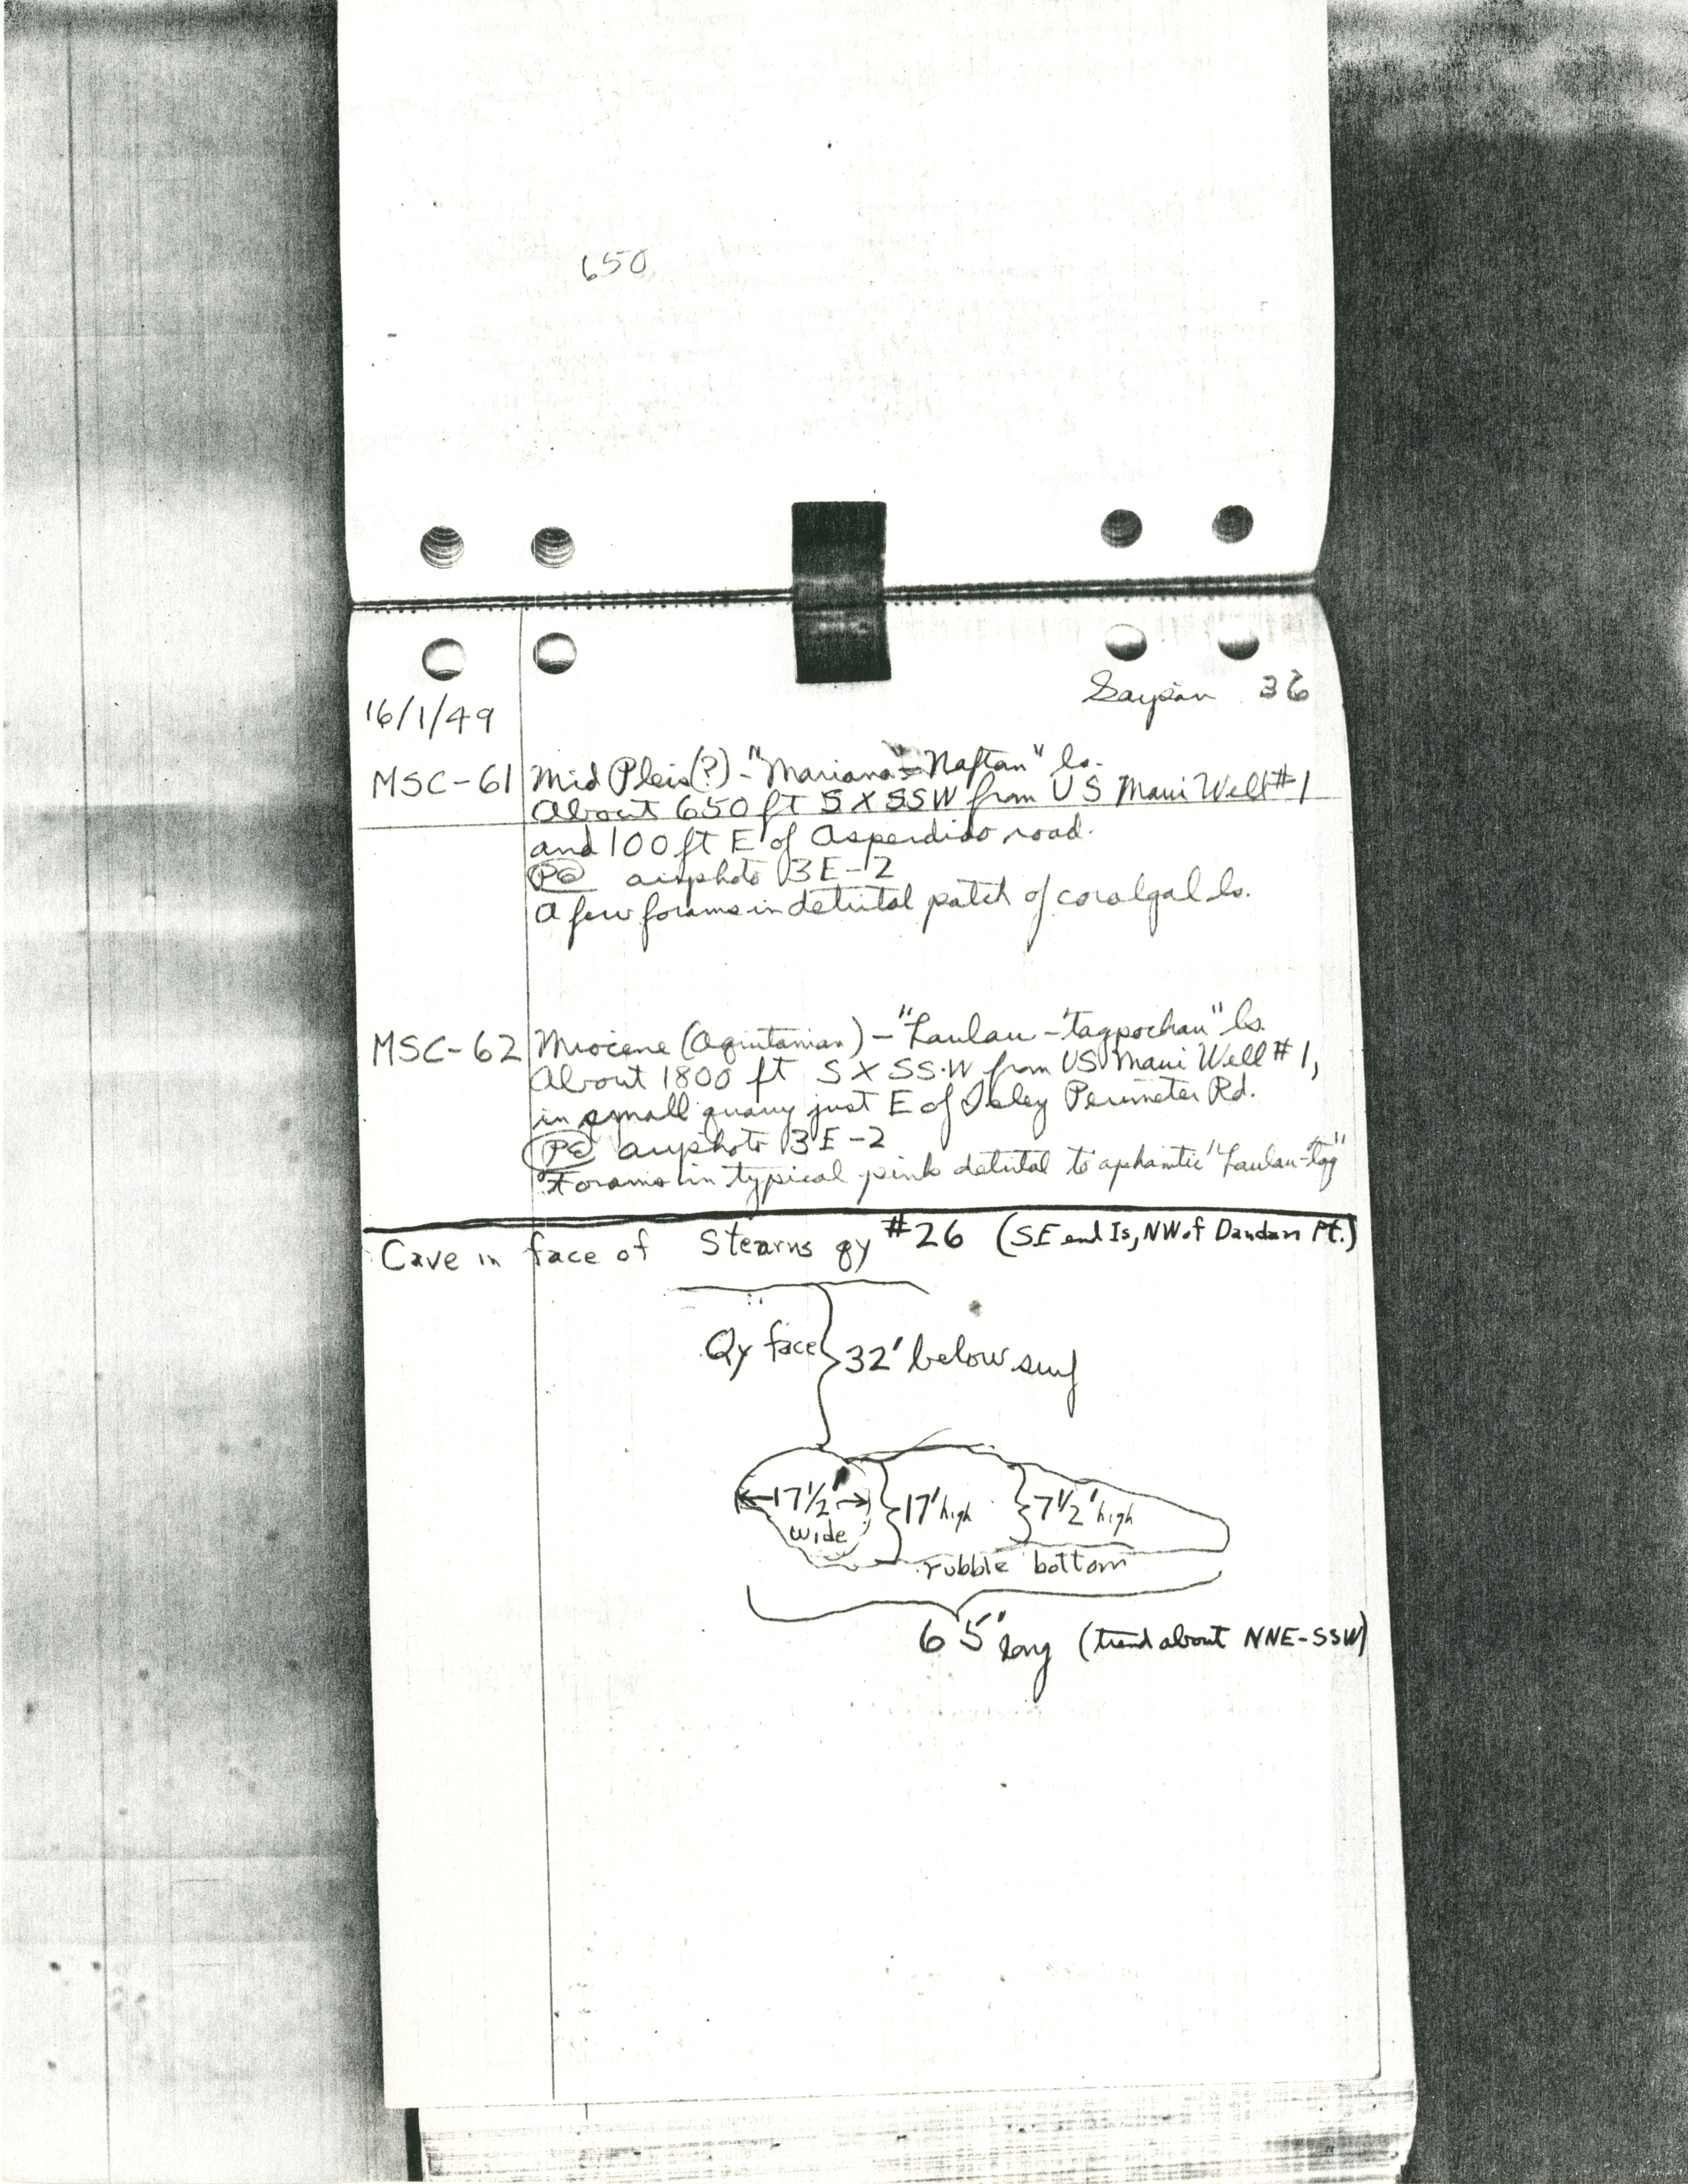 650
Saipan 36
16/1/49
MSC-61 Mid Pleis(?) - "Mariana = Naftan" ls.
About 650 ft S X SSW from US Maui Well #1
and 100 ft E of Asperdido road.
airphoto 13E-2
A few forams in detrital patch of coralgal ls.
MSC-62 Miocene (Aquitanian) - "Laulau-tagpochau" ls.
About 1800 ft S X SSW from US Maui Well #1,
in small quarry just E of Isley Perimeter Rd.
airphoto 13E-2
Forams in typical pink detrital to aphanitic "Laulau-tag"
Cave in face of Stearns qy #26 (SE end Is, NW of Dandan Pt.)
Qy face 32' below surf
17½' wide
17' high
7½' high
rubble bottom
65' long (trend about NNE-SSW)